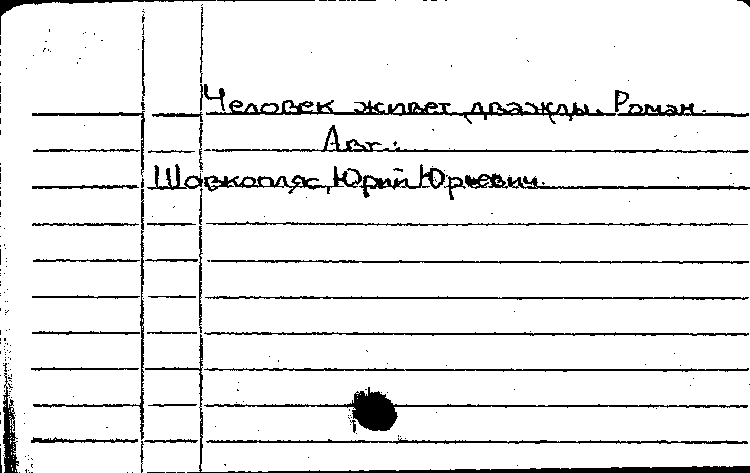 Человек живет дважды. Роман.
Авт.:
Шовкопляс, Юрий Юрьевич.